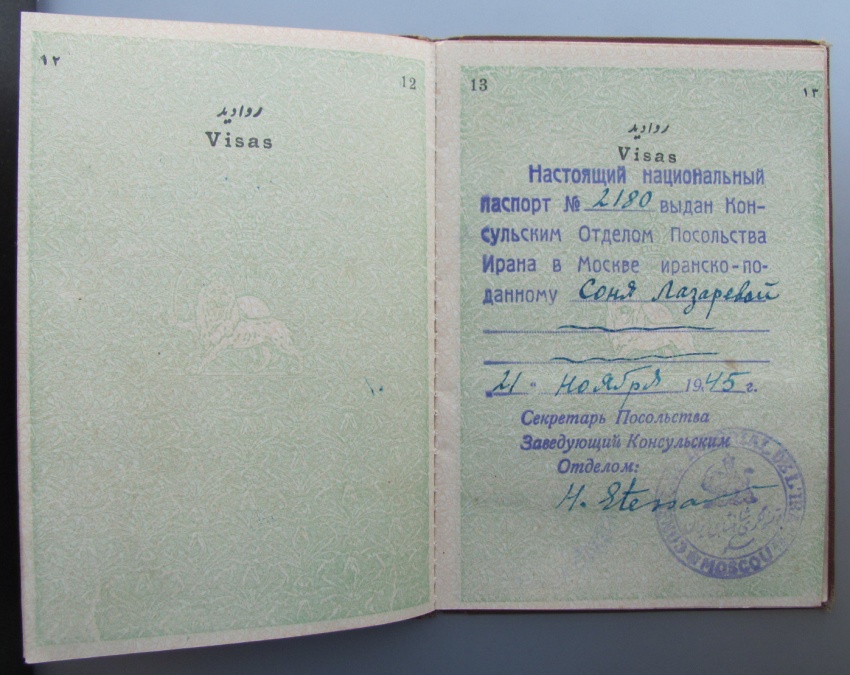 ۱۲
12
روادید
Visas
13
۱۳
روادید
Visas
Настоящий национальный
паспорт № 2180 выдан Кон-
сульским Отделом Посольства
Ирана в Москве иранско-по-
данному Соня Лазаревой
21 " ноября 1945 г.
Секретарь Посольства
Заведующий Консульским
Отделом:
H.
MOSCOU